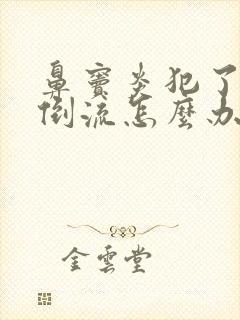 鼻竇炎犯了
倒流怎麼办
金雲堂